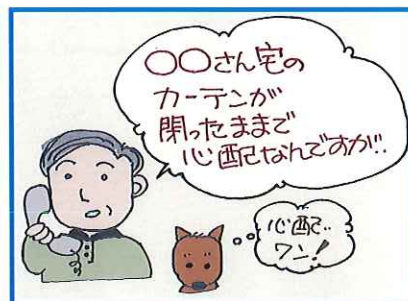 〇〇さん宅の
カーテンが
閉ったままで
心配なんですが‥
心配‥
ワン!